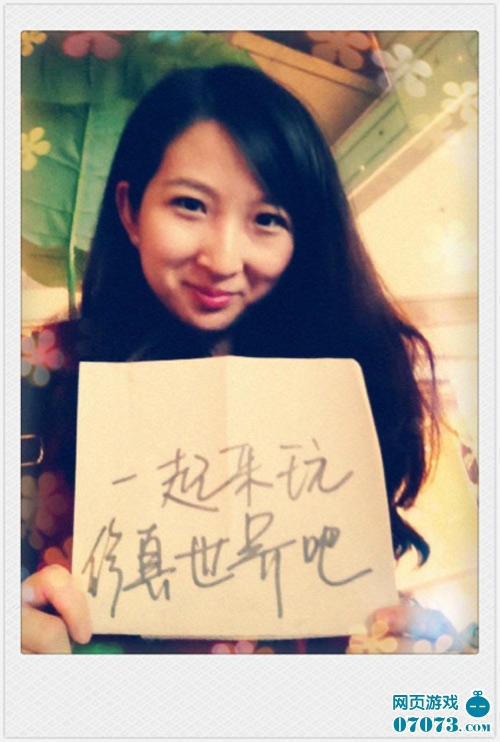 一起来玩
修真世界吧
网页游戏
07073.COM